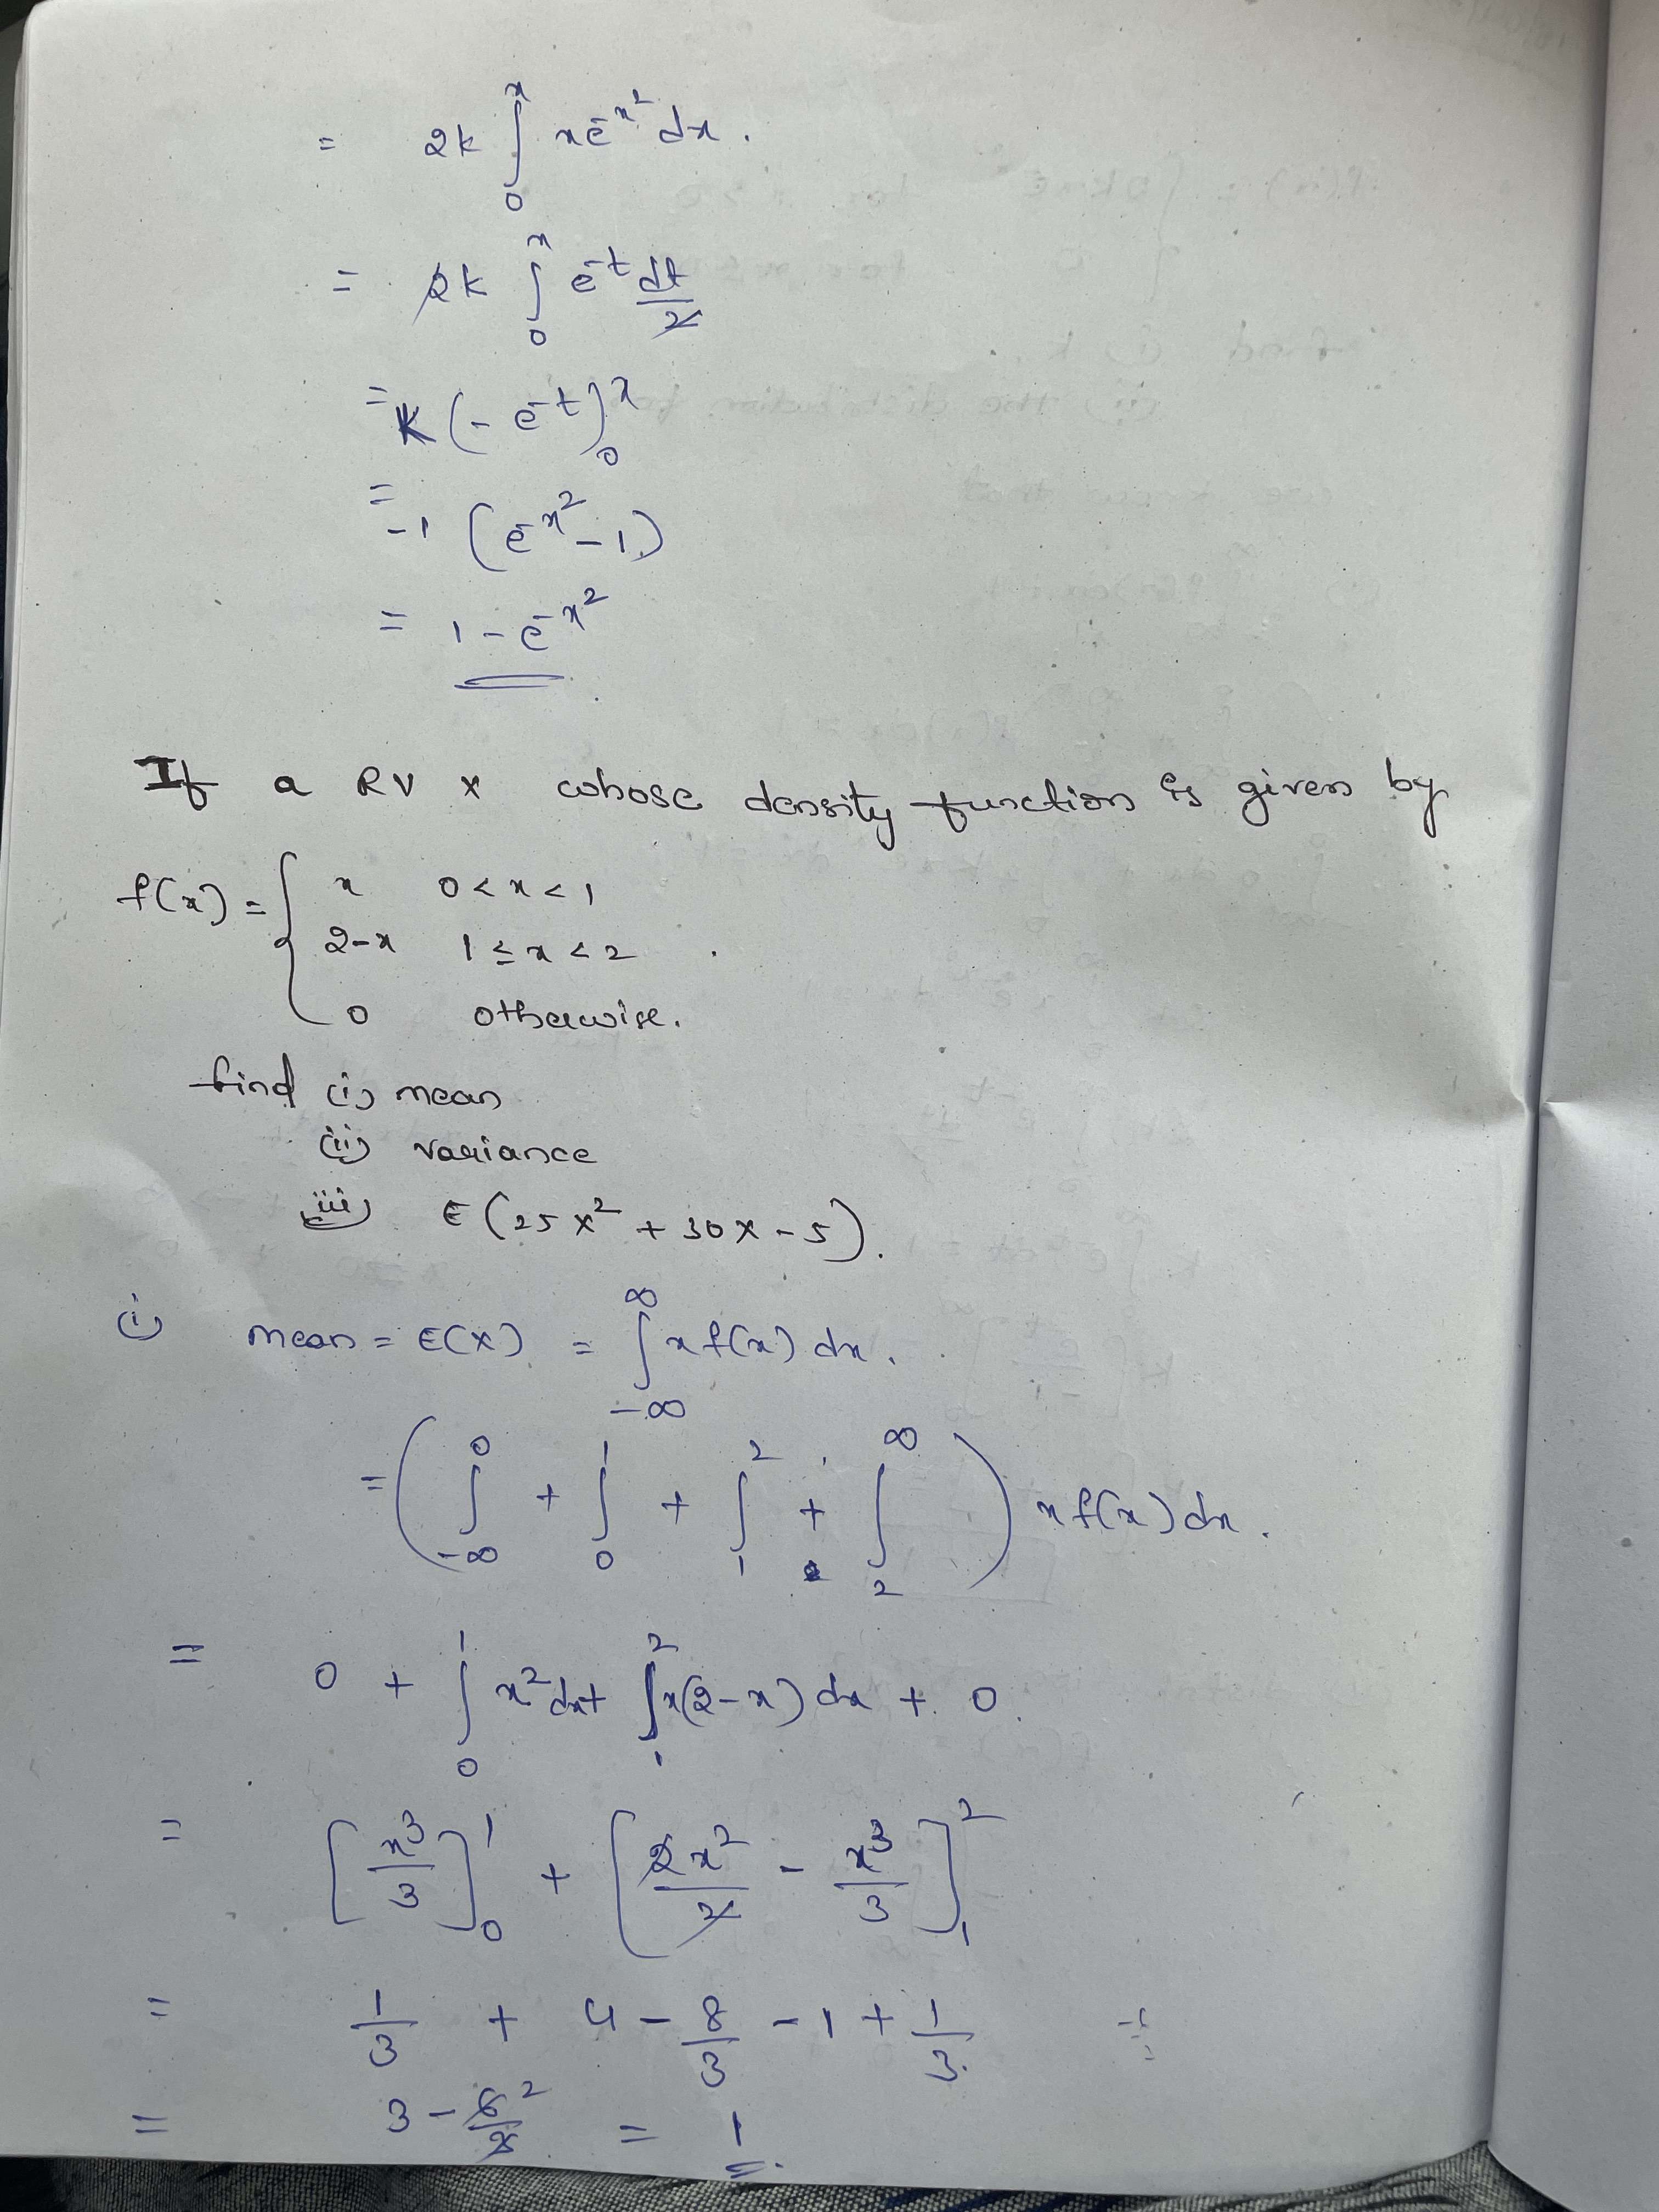 = 2k ∫₀ˣ x e^-x² dx.
= 2k ∫₀ˣ e^-t dt/2
= k (-e^-t)₀ˣ
= -1 (e^-x² - 1)
= 1 - e^-x²
If a RV X whose density function is given by
f(x) = { x 0 < x < 1
2-x 1 ≤ x < 2 .
0 otherwise.
find (i) mean
(ii) variance
(iii) E(25x² + 30x - 5).
(i) mean = E(X) = ∫_-∞^∞ x f(x) dx.
= ( ∫_-∞^0 + ∫_0^1 + ∫_1^2 + ∫_2^∞ ) x f(x) dx.
= 0 + ∫_0^1 x² dx + ∫_1^2 x(2-x) dx + 0.
= [x³/3]_0^1 + [2x²/2 - x³/3]_1^2
= 1/3 + 4 - 8/3 - 1 + 1/3
= 3 - 6/3 2 = 1